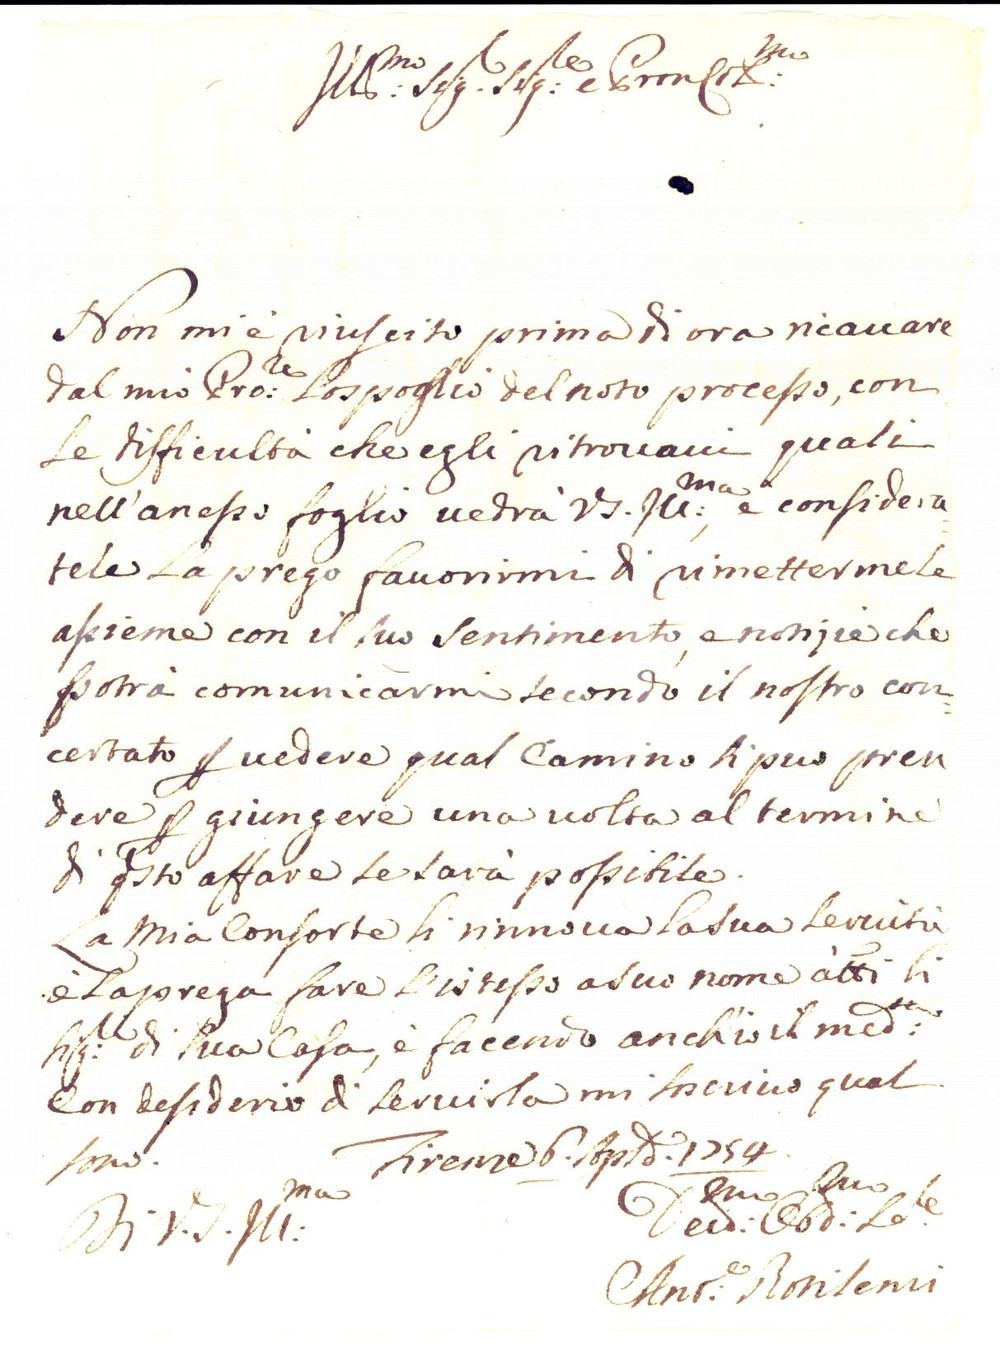 Ill.mo Sig. Sig.re e Pron Col.mo
Non mi è riuscito prima di ora ricavare
dal mio Pro.re Lo spoglio del noto processo, con
le difficultà che egli ritrovavi quali
nell'anesso foglio vedrà VS. Ill.ma, e considera=
tele La prego favorirmi di rimettermele
assieme con il suo sentimento, e notizie che
potrà comunicarmi secondo il nostro con=
certato p vedere qual Camino si può pren
dere p giungere una volta al termine
di qsto affare se sarà possibile.
La Mia Consorte li rinnova La sua servitù
è La prega fare l'istesso a suo nome à tti li
Sig.ri di sua Casa, è facendo anch'io il med.mo
Con desiderio di servirla mi soscrivo qual
sono. Firenze 6. 1754
Di V.S. Ill.ma
Dev.mo Obb.mo Se.re
Ant.o